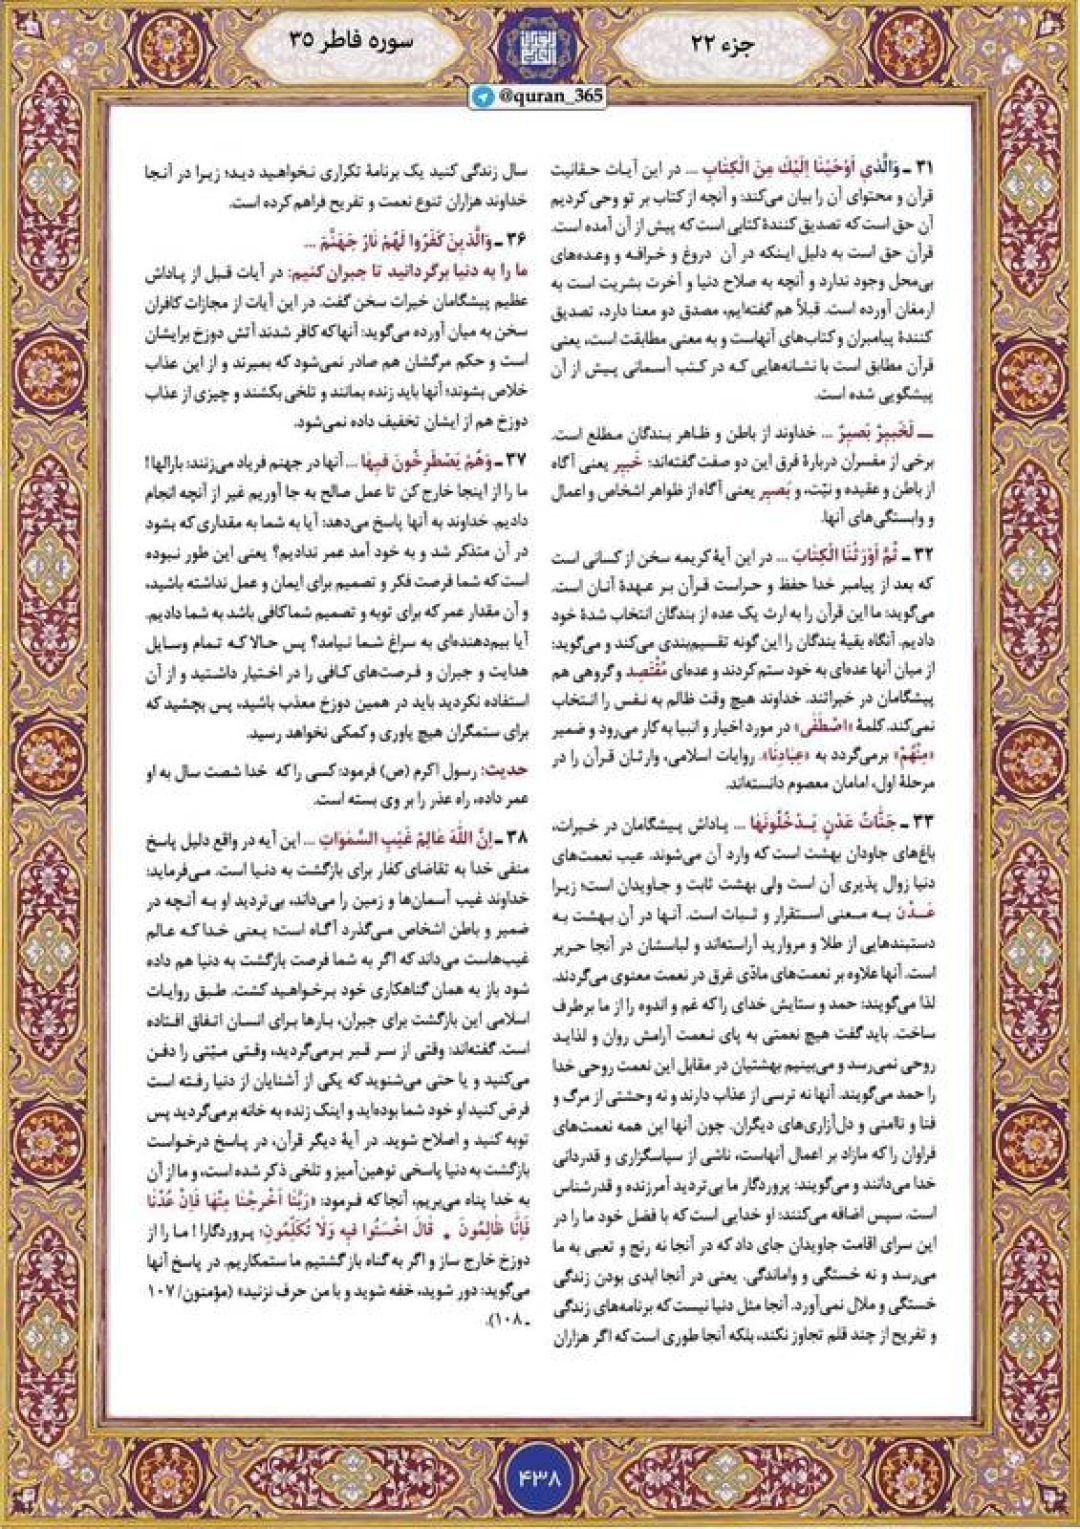 جزء ۲۲
سوره فاطر ۳۵
@quran_365
۳۱ ـ وَالَّذي اَوْحَيْنَا اِلَيْكَ مِنَ الْكِتَابِ ... در این آیات حقانیت
قرآن و محتوای آن را بیان می‌کند: و آنچه از کتاب بر تو وحی کردیم
آن حق است که تصدیق کنندهٔ کتابی است که پیش از آن آمده است.
قرآن حق است به دلیل اینکه در آن دروغ و خرافه و وعده‌های
بی‌محل وجود ندارد و آنچه به صلاح دنیا و آخرت بشریت است به
ارمغان آورده است. قبلاً هم گفته‌ایم، مصدق دو معنا دارد، تصدیق
کنندهٔ پیامبران و کتاب‌های آنهاست و به معنی مطابقت است، یعنی
قرآن مطابق است با نشانه‌هایی که در کتب آسمانی پیش از آن
پیشگویی شده است.
ــ لَخَبيرٌ بَصيرٌ ... خداوند از باطن و ظاهر بندگان مطلع است.
برخی از مفسران دربارهٔ فرق این دو صفت گفته‌اند: خَبير یعنی آگاه
از باطن و عقیده و نیّت، و بَصير یعنی آگاه از ظواهر اشخاص و اعمال
و وابستگی‌های آنها.
۳۲ ـ ثُمَّ اَوْرَثْنَا الْكِتَابَ ... در این آیهٔ کریمه سخن از کسانی است
که بعد از پیامبر خدا حفظ و حراست قرآن بر عهدهٔ آنان است.
می‌گوید: ما این قرآن را به ارث یک عده از بندگان انتخاب شدهٔ خود
دادیم. آنگاه بقیهٔ بندگان را این گونه تقسیم‌بندی می‌کند و می‌گوید:
از میان آنها عده‌ای به خود ستم کردند و عده‌ای مُقْتَصِد و گروهی هم
پیشگامان در خیراتند. خداوند هیچ وقت ظالم به نفس را انتخاب
نمی‌کند. کلمهٔ «اصْطَفَى» در مورد اخیار و انبیا به کار می‌رود و ضمیر
«مِنْهُمْ» برمی‌گردد به «عِبَادِنَا». روایات اسلامی، وارثان قرآن را در
مرحلهٔ اول، امامان معصوم دانسته‌اند.
۳۳ ـ جَنَّاتُ عَدْنٍ يَدْخُلُونَهَا ... پاداش پیشگامان در خیرات،
باغ‌های جاودان بهشت است که وارد آن می‌شوند. عیب نعمت‌های
دنیا زوال پذیری آن است ولی بهشت ثابت و جاویدان است؛ زیرا
عَدْن به معنی استقرار و ثبات است. آنها در آن بهشت به
دستبندهایی از طلا و مروارید آراسته‌اند و لباسشان در آنجا حریر
است. آنها علاوه بر نعمت‌های مادّی غرق در نعمت معنوی می‌گردند.
لذا می‌گویند: حمد و ستایش خدای را که غم و اندوه را از ما برطرف
ساخت. باید گفت هیچ نعمتی به پای نعمت آرامش روان و لذاید
روحی نمی‌رسد و می‌بینیم بهشتیان در مقابل این نعمت روحی خدا
را حمد می‌گویند. آنها نه ترسی از عذاب دارند و نه وحشتی از مرگ و
فنا و ناامنی و دل‌آزاری‌های دیگران. چون آنها این همه نعمت‌های
فراوان را که مازاد بر اعمال آنهاست، ناشی از سپاسگزاری و قدردانی
خدا می‌دانند و می‌گویند: پروردگار ما بی‌تردید آمرزنده و قدرشناس
است. سپس اضافه می‌کنند: او خدایی است که با فضل خود ما را در
این سرای اقامت جاویدان جای داد که در آنجا نه رنج و تعبی به ما
می‌رسد و نه خستگی و واماندگی. یعنی در آنجا ابدی بودن زندگی
خستگی و ملال نمی‌آورد. آنجا مثل دنیا نیست که برنامه‌های زندگی
و تفریح از چند قلم تجاوز نکند، بلکه آنجا طوری است که اگر هزاران
سال زندگی کنید یک برنامهٔ تکراری نخواهید دید؛ زیرا در آنجا
خداوند هزاران تنوع نعمت و تفریح فراهم کرده است.
۳۶ ـ وَالَّذينَ كَفَرُوا لَهُمْ نَارُ جَهَنَّمَ ...
ما را به دنیا برگردانید تا جبران کنیم: در آیات قبل از پاداش
عظیم پیشگامان خیرات سخن گفت. در این آیات از مجازات کافران
سخن به میان آورده می‌گوید: آنها که کافر شدند آتش دوزخ برایشان
است و حکم مرگشان هم صادر نمی‌شود که بمیرند و از این عذاب
خلاص بشوند؛ آنها باید زنده بمانند و تلخی بکشند و چیزی از عذاب
دوزخ هم از ایشان تخفیف داده نمی‌شود.
۳۷ ـ وَهُمْ يَصْطَرِخُونَ فيهَا ... آنها در جهنم فریاد می‌زنند: بارالها!
ما را از اینجا خارج کن تا عمل صالح به جا آوریم غیر از آنچه انجام
دادیم. خداوند به آنها پاسخ می‌دهد: آیا به شما به مقداری که بشود
در آن متذکر شد و به خود آمد عمر ندادیم؟ یعنی این طور نبوده
است که شما فرصت فکر و تصمیم برای ایمان و عمل نداشته باشید،
و آن مقدار عمر که برای توبه و تصمیم شما کافی باشد به شما دادیم.
آیا بیم‌دهنده‌ای به سراغ شما نیامد؟ پس حالا که تمام وسایل
هدایت و جبران و فرصت‌های کافی را در اختیار داشتید و از آن
استفاده نکردید باید در همین دوزخ معذب باشید، پس بچشید که
برای ستمگران هیچ یاوری و کمکی نخواهد رسید.
حدیث: رسول اکرم (ص) فرمود: کسی را که خدا شصت سال به او
عمر داده، راه عذر را بر وی بسته است.
۳۸ ـ اِنَّ اللهَ عَالِمُ غَيْبِ السَّمٰوَاتِ ... این آیه در واقع دلیل پاسخ
منفی خدا به تقاضای کفار برای بازگشت به دنیا است. می‌فرماید:
خداوند غیب آسمان‌ها و زمین را می‌داند، بی‌تردید او به آنچه در
ضمیر و باطن اشخاص می‌گذرد آگاه است؛ یعنی خدا که عالم
غیب‌هاست می‌داند که اگر به شما فرصت بازگشت به دنیا هم داده
شود باز به همان گناهکاری خود برخواهید گشت. طبق روایات
اسلامی این بازگشت برای جبران، بارها برای انسان اتفاق افتاده
است. گفته‌اند: وقتی از سر قبر برمی‌گردید، وقتی میّتی را دفن
می‌کنید و یا حتی می‌شنوید که یکی از آشنایان از دنیا رفته است
فرض کنید او خود شما بوده‌اید و اینک زنده به خانه برمی‌گردید پس
توبه کنید و اصلاح شوید. در آیهٔ دیگر قرآن، در پاسخ درخواست
بازگشت به دنیا پاسخی توهین‌آمیز و تلخی ذکر شده است، و ما از آن
به خدا پناه می‌بریم، آنجا که فرمود: «رَبَّنَا اَخْرِجْنَا مِنْهَا فَاِنْ عُدْنَا
فَاِنَّا ظَالِمُونَ * قَالَ اخْسَئُوا فيهِ وَلَا تُكَلِّمُونِ؛ پروردگارا! ما را از
دوزخ خارج ساز و اگر به گناه بازگشتیم ما ستمکاریم. در پاسخ آنها
می‌گوید: دور شوید، خفه شوید و با من حرف نزنید» (مؤمنون/ ۱۰۷
ـ ۱۰۸).
۴۳۸